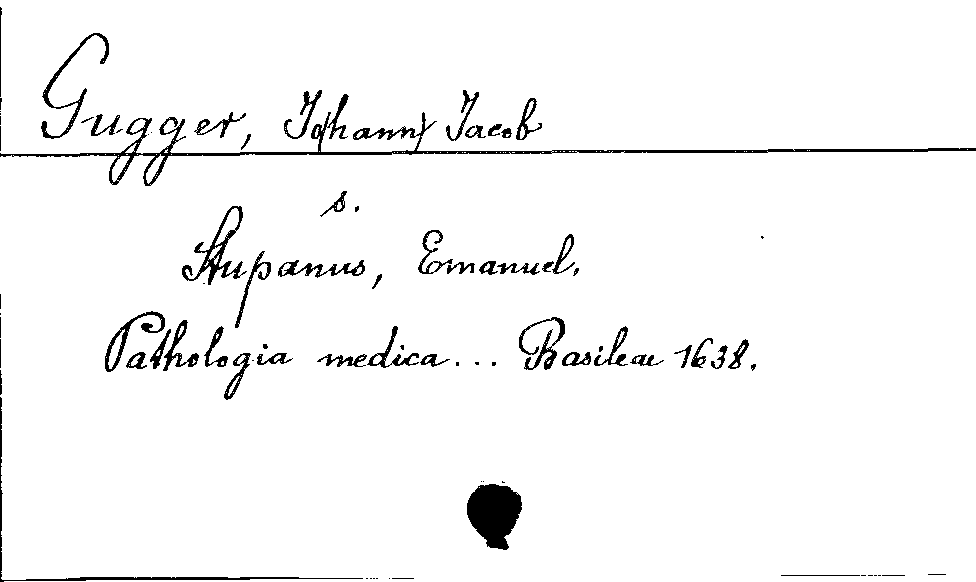 Gugger, Jo(hann) Jacob
s.
Stupanus, Emanuel.
Pathologia medica... Basileae 1638.